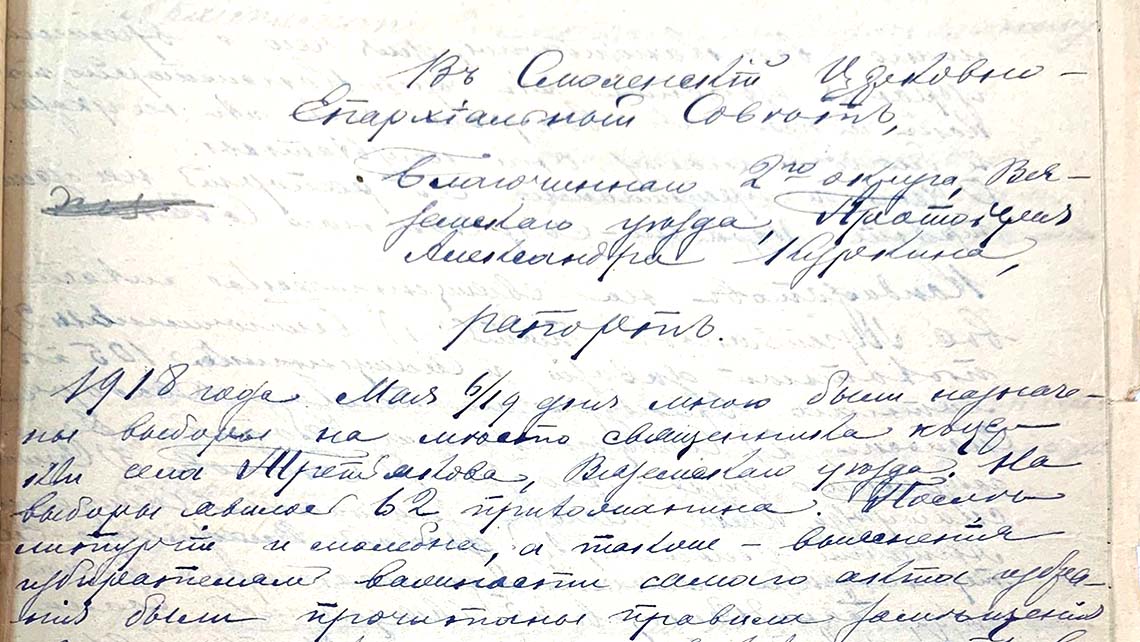 Въ Смоленскій Церковно-
Епархіальный Совѣтъ,
Благочиннаго 2го округа, Вя-
земскаго уѣзда, Протоіерея
Александра Курекина,
рапортъ.
1918 года Мая 6/19 дня мною были назначе-
ны выборы на мѣсто священника къ цер-
кви села Третьякова, Вяземскаго уѣзда. На
выборы явилось 62 прихожанина. Послѣ
литургіи и молебна, а также – выясненія
избирателямъ важности самого акта избра-
нія были прочитаны правила замѣщенія